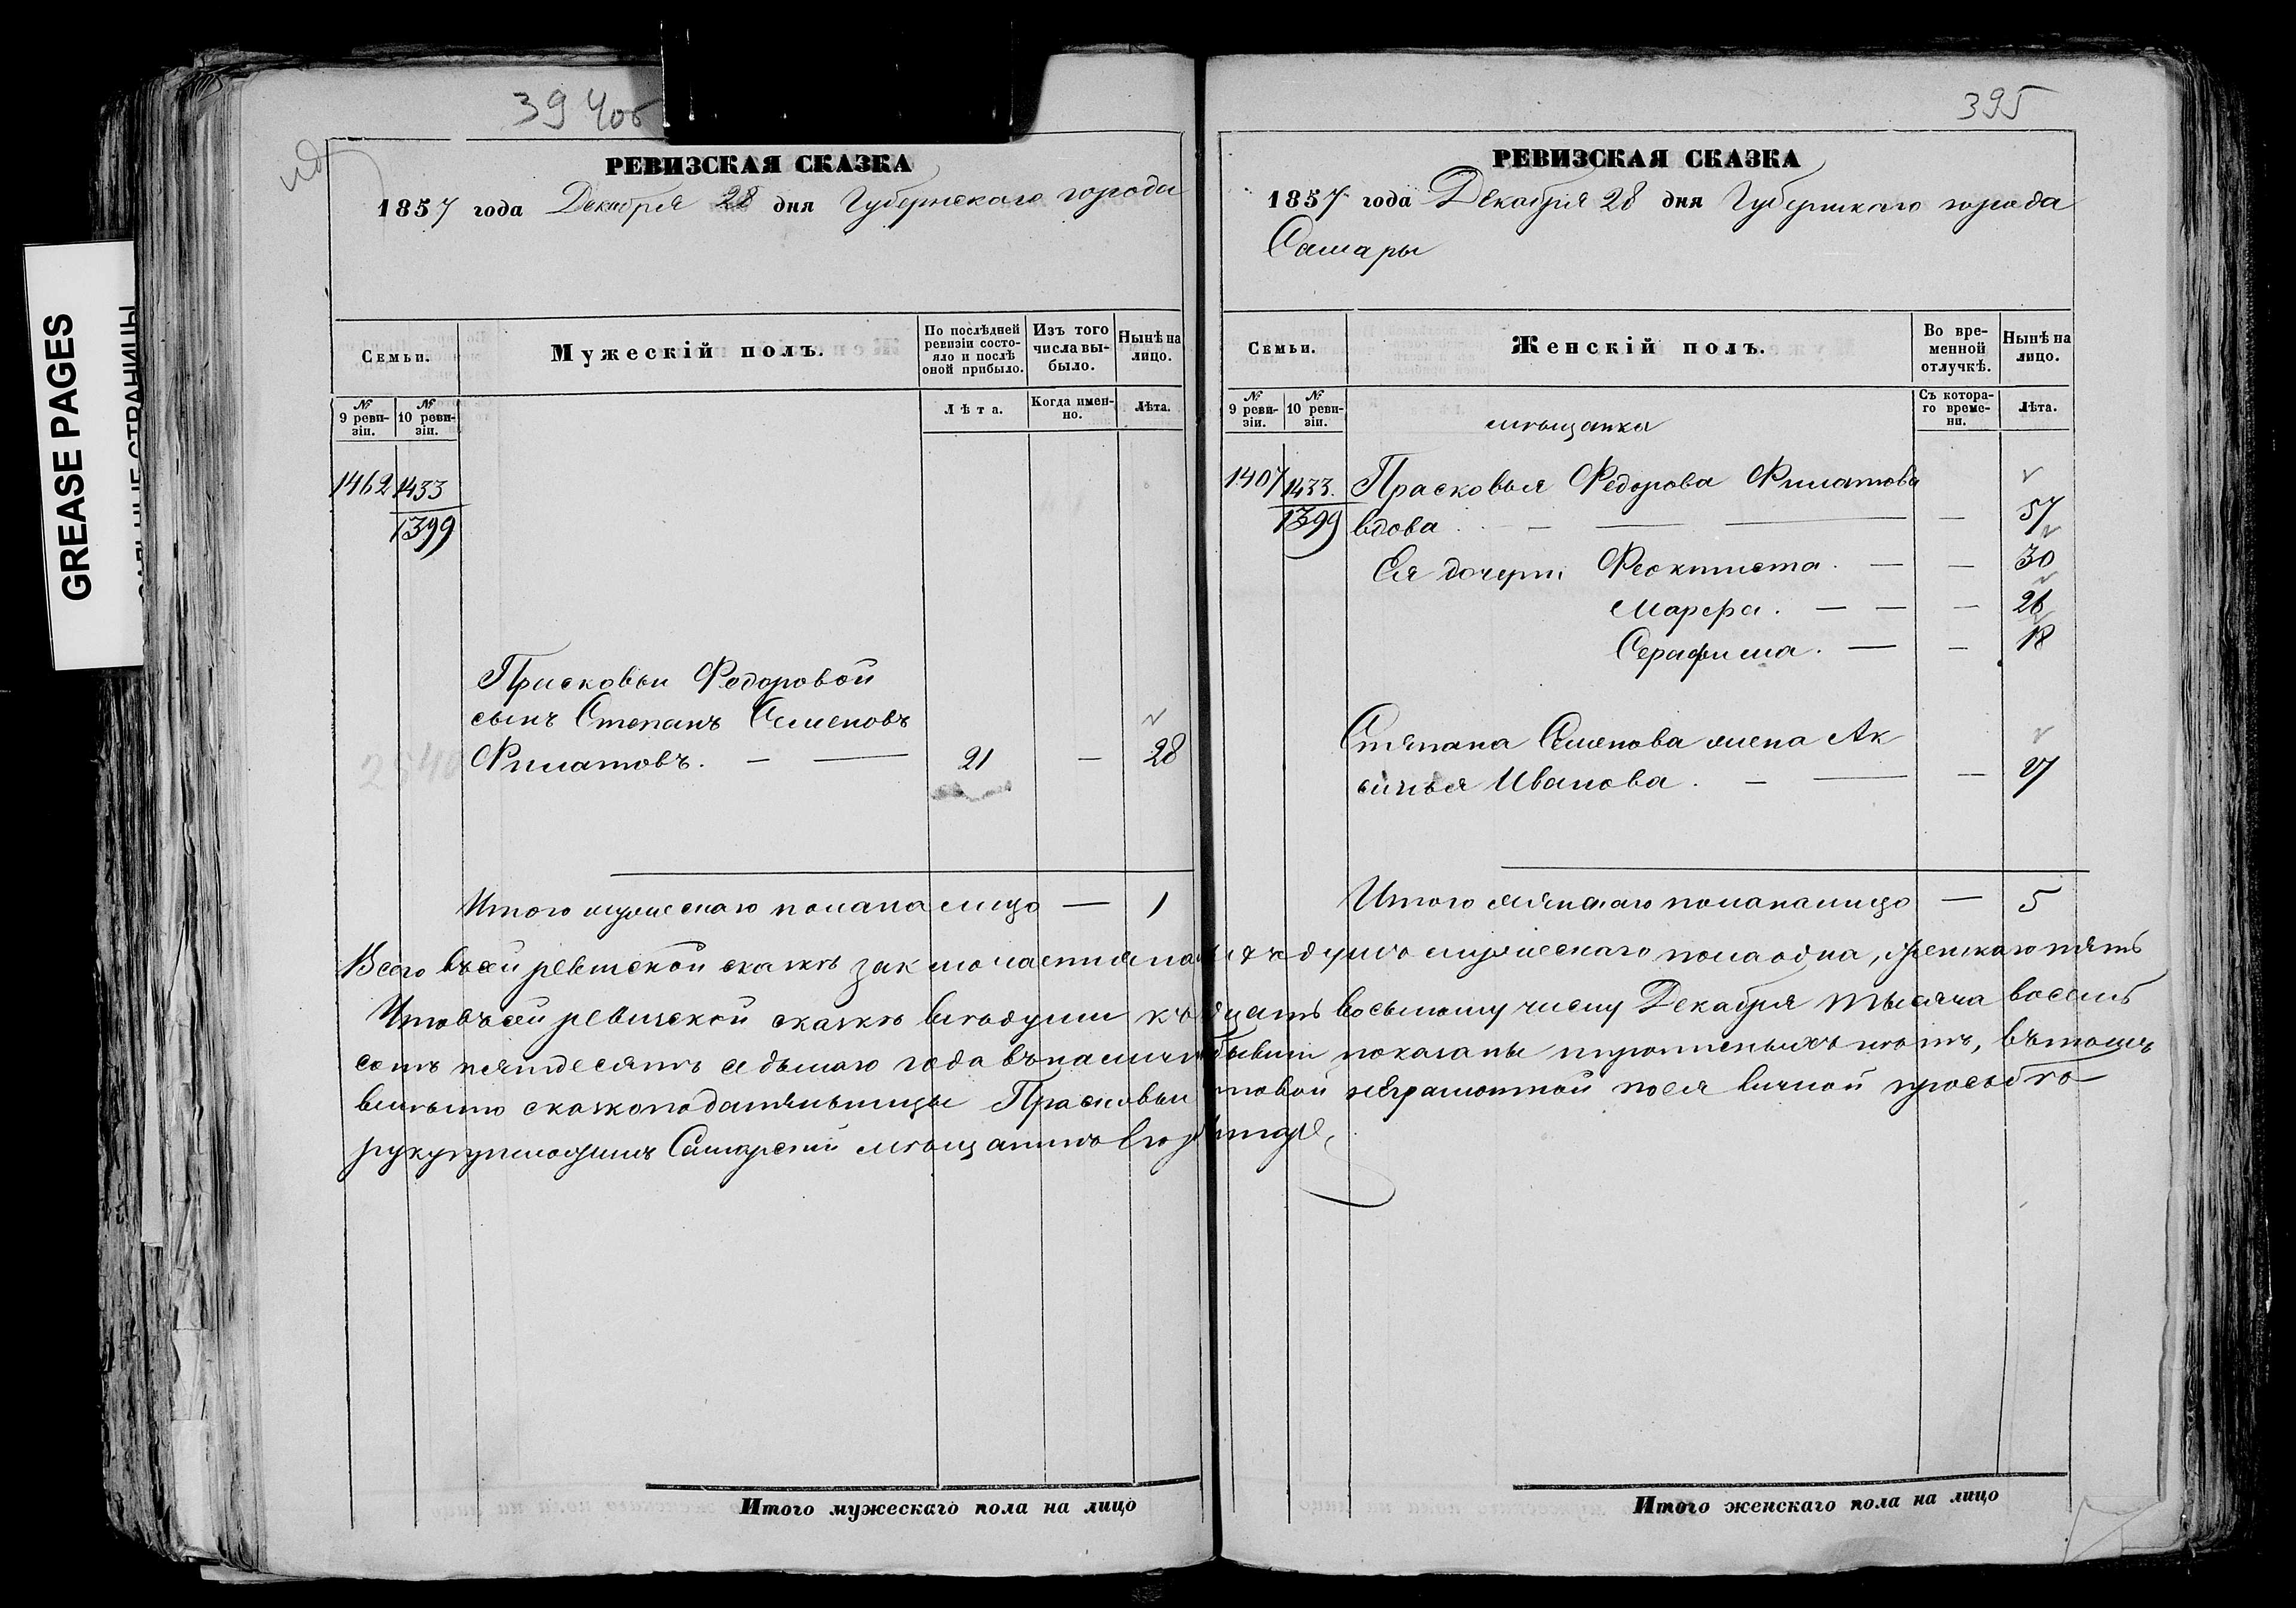 GREASE PAGES
394об
РЕВИЗСКАЯ СКАЗКА
1857 года Декабря 28 дня Губернскаго города
Семьи.
Мужескій полъ.
По послѣдней ревизіи состояло и послѣ оной прибыло.
Изъ того числа выбыло.
Нынѣ на лицо.
№ 9 ревизіи.
№ 10 ревизіи.
Лѣта.
Когда именно.
Лѣта.
1462 1433
1399
Прасковьи Федоровой
сынъ Степанъ Семеновъ
Филатовъ. — — 21 — 28
Итого мужескаго пола на лицо — 1
395
РЕВИЗСКАЯ СКАЗКА
1857 года Декабря 28 дня Губернскаго города
Самары
Семьи.
Женскій полъ.
Во временной отлучкѣ.
Нынѣ на лицо.
№ 9 ревизіи.
№ 10 ревизіи.
Съ котораго времени.
Лѣта.
мѣщанка
1407 1433. Прасковья Федорова Филатова
1399 вдова — — — — 57
Ея дочери Феоктиста. — — 30
Марфа. — — — 26
Серафима. — — 18
Степана Семенова жена Ак
синья Иванова. — — — 27
Итого женскаго пола на лицо — 5
Всего въ сей ревизской сказкѣ заключается душъ мужескаго пола одна, женскаго пять
Что въ сей ревизской сказкѣ всѣ души восьмому числу Декабря тысяча восемь
сотъ пятьдесятъ седьмаго года въ наличн показаны лѣтъ, въ томъ
вмѣсто сказкоподательницы Прасковьи неграмотной по ея личной просьбѣ
Самарскій мѣщанинъ
Итого мужескаго пола на лицо
Итого женскаго пола на лицо